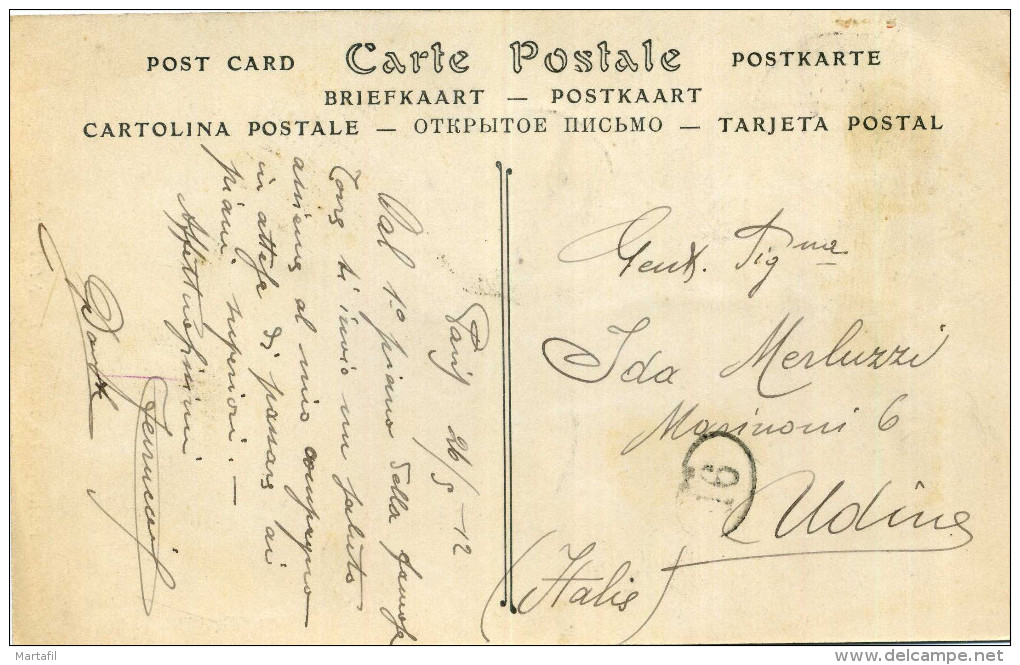 POST CARD Carte Postale POSTKARTE
BRIEFKAART — POSTKAART
CARTOLINA POSTALE — ОТКРЫТОЕ ПИСЬМО — TARJETA POSTAL
Parig 26/5-12
Dal 1º piano della famosa
Torre ti invio un saluto
assieme al mio compagno
in attesa di passare ai
piani superiori.—
Affettuosissimi
Gent. Signa
Ida Merluzzi
Marinoni 6
Udine
(Italia)
16
Martafil
delcampe.net